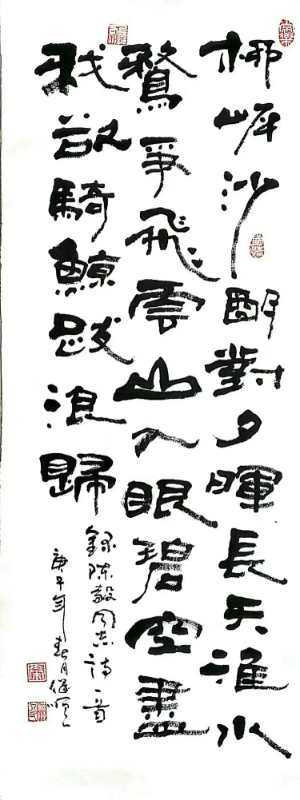 柳岸沙明對夕暉長天淮水
鶩爭飛雲山入眼碧空盡
我欲騎鯨跋浪歸
錄陳毅同志詩一首
庚午年春月